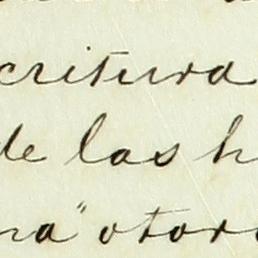 critura
de las h
na" otor